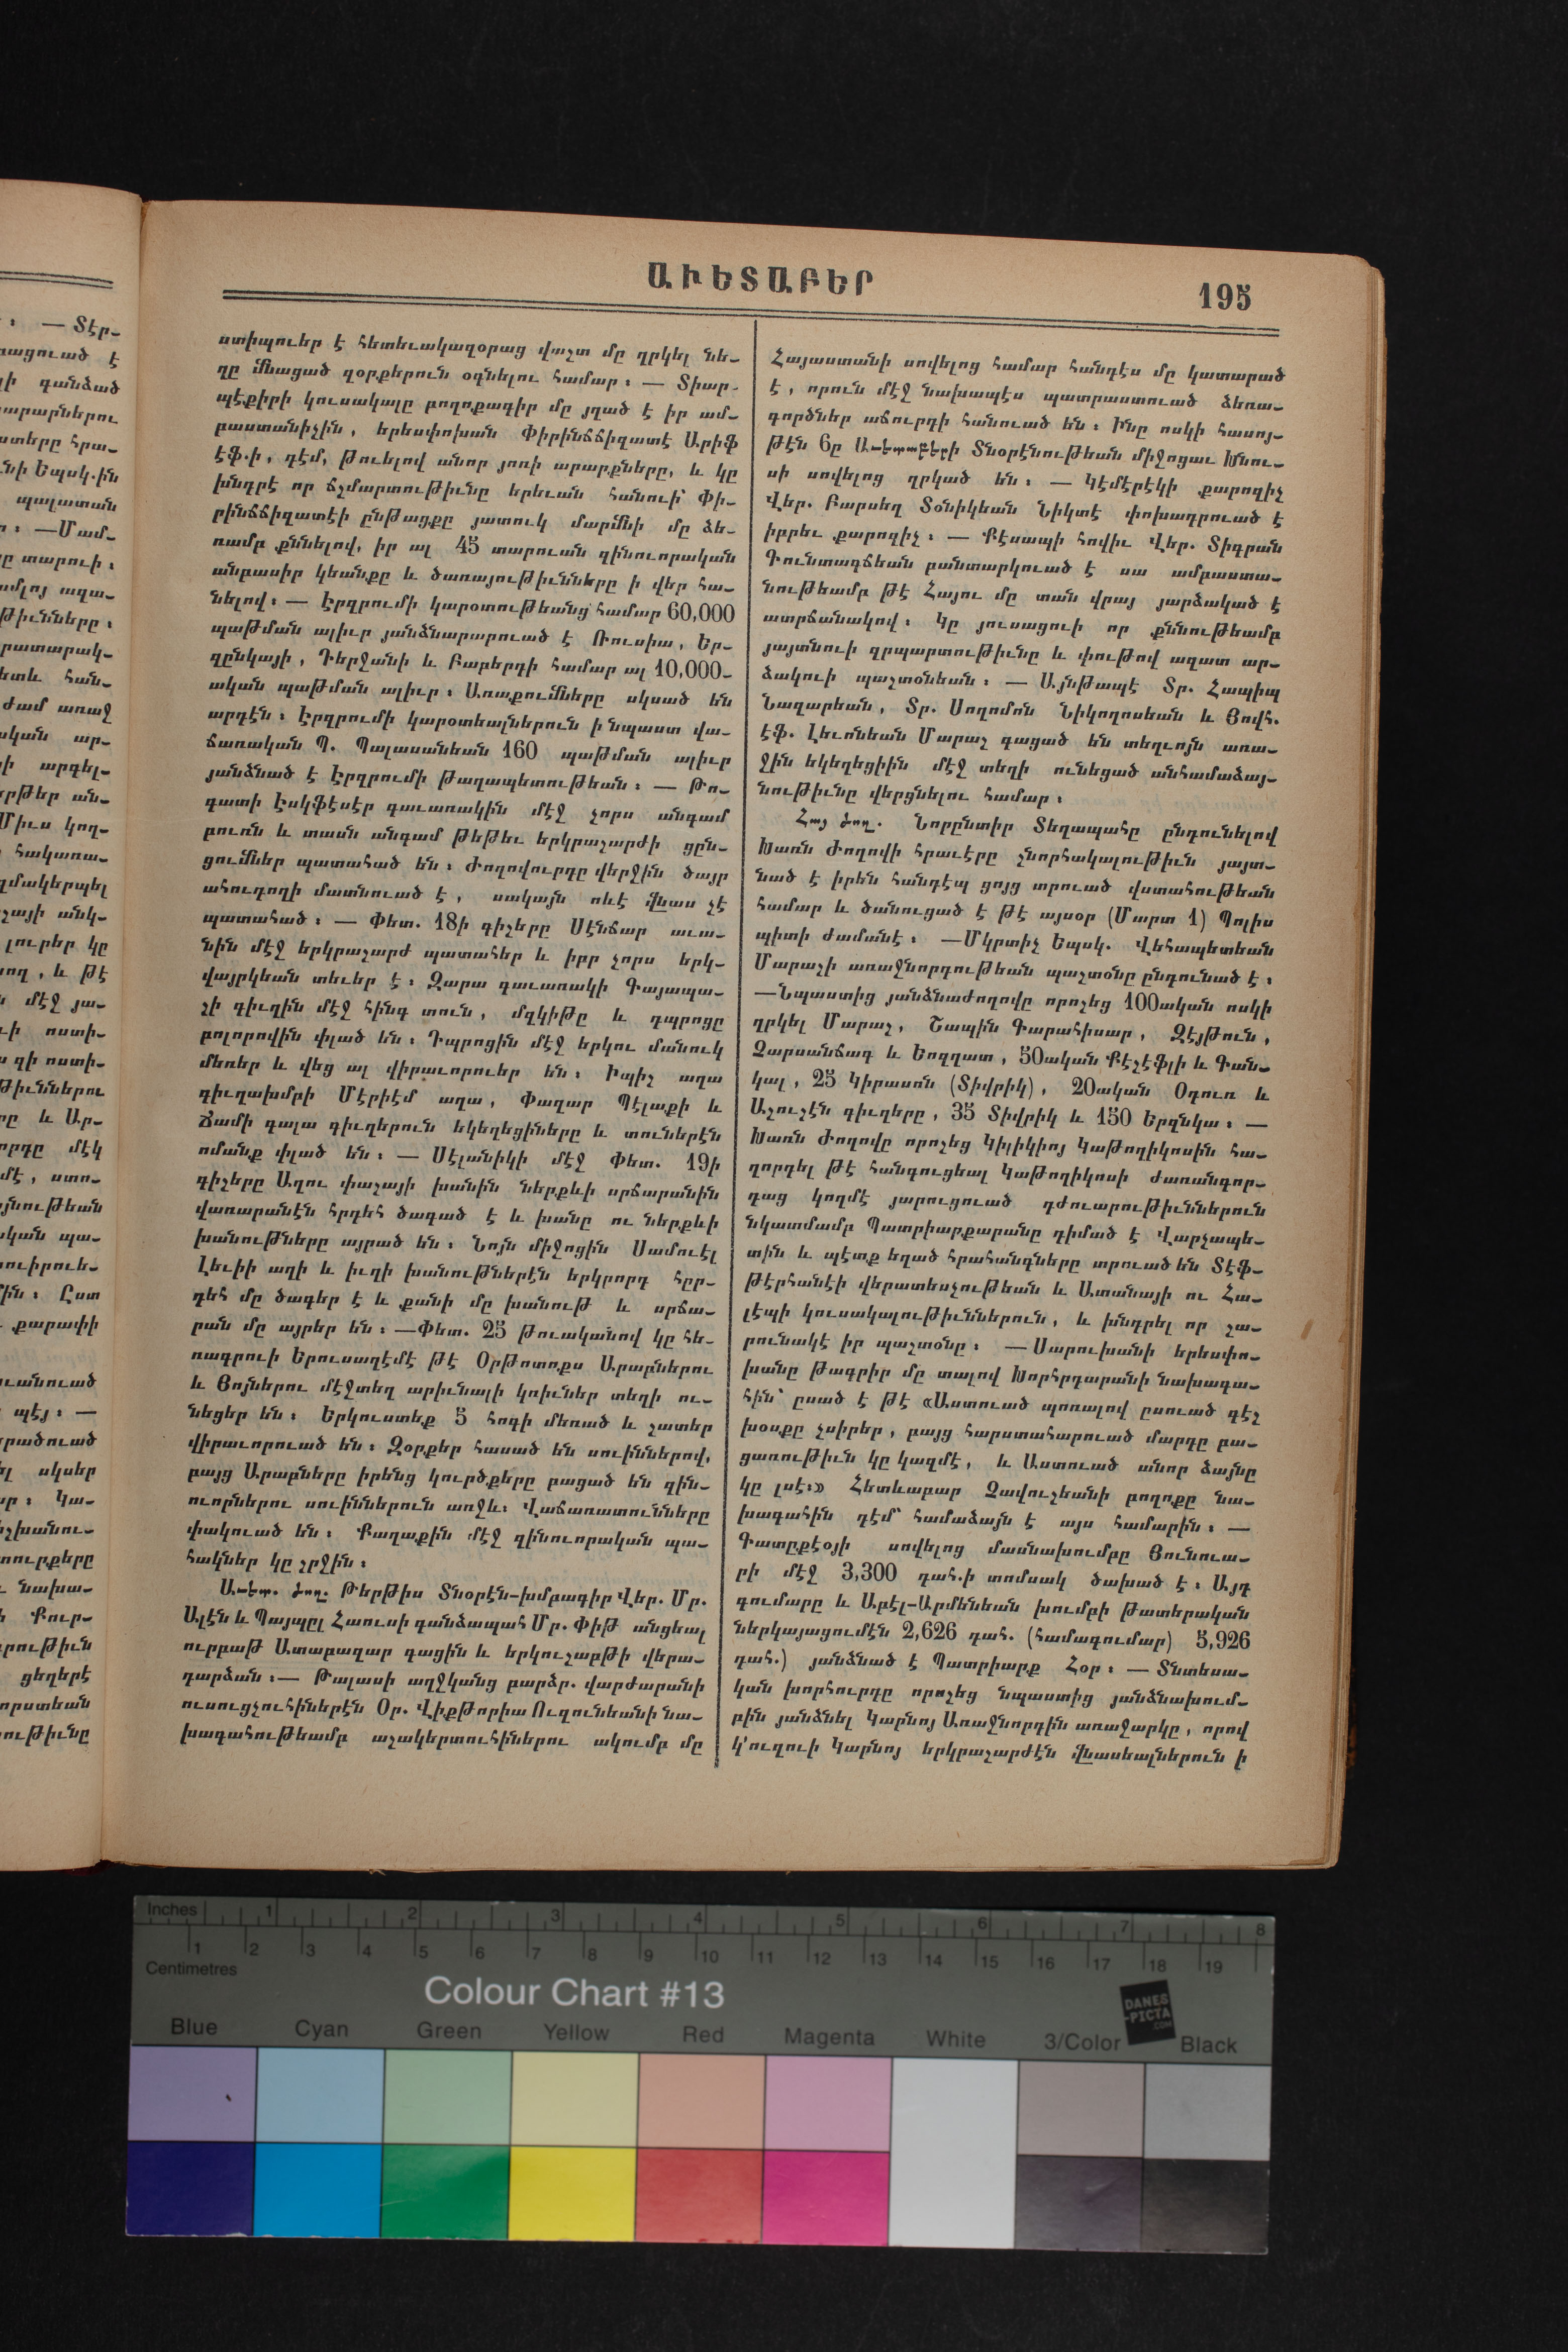 ԱՒԵՏԱԲԵՐ
195
ստիպուեր է հետեւակազօրաց վաշտ մը ղրկել նե-
ղը մնացած զօրքերուն օգնելու համար։ — Տիար-
պէքիրի կուսակալը բողոքագիր մը յղած է իր ամ-
բաստանիչին, երեսփոխան Փիրինճճիզատէ Արիֆ
էֆ.ի, դէմ, թուելով անոր յոռի արարքները, և կը
խնդրէ որ ճշմարտութիւնը երեւան հանուի՝ Փի-
րինճճիզատէի ընթացքը յատուկ մարմնի մը ձե-
ռամբ քննելով, իր ալ 45 տարուան զինուորական
անբասիր կեանքը և ծառայութիւնները ի վեր հա-
նելով։ — Էրզրումի կարօտութեանց համար 60,000
պաթման ալիւր յանձնարարուած է Ռուսիա, Եր-
զընկայի, Դերջանի և Բաբերդի համար ալ 10,000-
ական պաթման ալիւր։ Առաքումները սկսած են
արդէն։ Էրզրումի կարօտեալներուն ի նպաստ վա-
ճառական Պ. Պալասանեան 160 պաթման ալիւր
յանձնած է Էրզրումի Թաղապետութեան։ — Թո-
գատի Էսկֆէսէր գաւառակին մէջ չորս անգամ
բուռն և տասն անգամ թեթեւ երկրաշարժի ցըն-
ցումներ պատահած են։ Ժողովուրդը վերջին ծայր
ահուդողի մատնուած է, սակայն ոևէ վնաս չէ
պատահած։ — Փետ. 18ի գիշերը Սէնճար աւա-
նին մէջ երկրաշարժ պատահեր և իբր չորս երկ-
վայրկեան տեւեր է։ Զարա գաւառակի Գայապա-
շի գիւղին մէջ հինգ տուն, մզկիթը և դպրոցը
բոլորովին փլած են։ Դպրոցին մէջ երկու մանուկ
մեռեր և վեց ալ վիրաւորուեր են։ Իպիչ աղա
գիւղախմբի Մէրիէմ աղա, Փազար Պէլաքի և
Ճամի գալա գիւղերուն եկեղեցիները և տուներէն
ոմանք փլած են։ — Սէլանիկի մէջ Փետ. 19ի
գիշերը Աղու փաշայի խանին ներքևի սրճարանին
վառարանէն հրդեհ ծագած է և խանը ու ներքևի
խանութները այրած են։ Նոյն միջոցին Սամուէլ
Լեւիի աղի և իւղի խանութներէն երկրորդ հըր-
դեհ մը ծագեր է և քանի մը խանութ և սրճա-
րան մը այրեր են։ —Փետ. 25 թուականով կը հե-
ռագրուի Երուսաղէմէ թէ Օրթոտոքս Արաբներու
և Յոյներու մէջտեղ արիւնալի կռիւներ տեղի ու-
նեցեր են։ Երկուստեք 5 հոգի մեռած և շատեր
վիրաւորուած են։ Զօրքեր հասած են սուիններով,
բայց Արաբները իրենց կուրծքերը բացած են զին-
ուորներու սուիններուն առջև։ Վաճառատունները
փակուած են։ Քաղաքին մէջ զինուորական պա-
հակներ կը շրջին։
Աւետ. ժող. Թերթիս Տնօրէն-խմբագիր Վեր. Մր.
Ալէն և Պայպըլ Հաուսի գանձապահ Մր. Փիթ անցեալ
ուրբաթ Ատաբազար գացին և երկուշաբթի վերա-
դարձան։— Թալասի աղջկանց բարձր. վարժարանի
ուսուցչուհիներէն Օր. Վիքթորիա Ուզունեանի նա-
խագահութեամբ աշակերտուհիներու ակումբ մը
Հայաստանի սովելոց համար հանդէս մը կատարած
է, որուն մէջ նախապէս պատրաստուած ձեռա-
գործներ աճուրդի հանուած են։ Ինը ոսկի հասոյ-
թէն 6ը Աւետաբերի Տնօրէնութեան միջոցաւ Խնու-
սի սովելոց ղրկած են։ — Կէմէրէկի քարոզիչ
Վեր. Բարսեղ Տօնիկեան Նիկտէ փոխադրուած է
իբրեւ քարոզիչ։ — Քէսապի հովիւ Վեր. Տիգրան
Գունտագճեան բանտարկուած է սա ամբաստա-
նութեամբ թէ Հայու մը տան վրայ յարձակած է
ատրճանակով։ Կը յուսացուի որ քննութեամբ
յայտնուի զրպարտութիւնը և փութով ազատ ար-
ձակուի պաշտօնեան։ — Այնթապէ Տր. Հապիպ
Նազարեան, Տր. Սողոմոն Նիկողոսեան և Յովհ.
էֆ. Լեւոնեան Մարաշ գացած են տեղւոյն առա-
ջին եկեղեցիին մէջ տեղի ունեցած անհամաձայ-
նութիւնը վերցնելու համար։
Հայ ժող. Նորընտիր Տեղապահը ընդունելով
Խառն Ժողովի հրաւէրը շնորհակալութիւն յայտ-
նած է իրեն հանդէպ ցոյց տրուած վստահութեան
համար և ծանուցած է թէ այսօր (Մարտ 1) Պոլիս
պիտի ժամանէ։ —Մկրտիչ Եպսկ. Վեհապետեան
Մարաշի առաջնորդութեան պաշտօնը ընդունած է։
—Նպաստից յանձնաժողովը որոշեց 100ական ոսկի
ղրկել Մարաշ, Շապին Գարահիսար, Զէյթուն,
Չարսանճագ և Եոզղատ, 50ական Քէչէֆլի և Գան-
կալ, 25 Կիրասոն (Տիվրիկ), 20ական Օդուռ և
Աշուշէն գիւղերը, 35 Տիվրիկ և 150 Երզնկա։ —
Խառն Ժողովը որոշեց Կիլիկիոյ Կաթողիկոսին հա-
ղորդել թէ հանգուցեալ Կաթողիկոսի ժառանգոր-
դաց կողմէ յարուցուած դժուարութիւններուն
նկատմամբ Պատրիարքարանը դիմած է Վարչապե-
տին և պէտք եղած հրահանգները տրուած են Տէֆ-
թէրհանէի վերատեսչութեան և Ատանայի ու Հա-
լէպի կուսակալութիւններուն, և խնդրել որ շա-
րունակէ իր պաշտօնը։ —Սարուխանի երեսփո-
խանը Թագրիր մը տալով Խորհրդարանի նախագա-
հին՝ ըսած է թէ «Աստուած պոռալով ըսուած գէշ
խօսքը չսիրեր, բայց հարստահարուած մարդը բա-
ցառութիւն կը կազմէ, և Աստուած անոր ձայնը
կը լսէ։» Հետևաբար Չավուշեանի բողոքը նա-
խագահին դէմ՝ համաձայն է այս համարին։ —
Գատըքէօյի սովելոց մասնախումբը Յունուա-
րի մէջ 3,300 դահ.ի տոմսակ ծախած է։ Այդ
գումարը և Աբէլ-Արմենեան խումբի թատերական
ներկայացումէն 2,626 դահ. (համագումար) 5,926
դահ.) յանձնած է Պատրիարք Հօր։ — Տնտեսա-
կան խորհուրդը որոշեց նպաստից յանձնախում-
բին յանձնել Կարնոյ Առաջնորդին առաջարկը, որով
կ՚ուզուի Կարնոյ երկրաշարժէն վնասեալներուն ի
Inches 1 2 3 4 5 6 7 8
1 2 3 4 5 6 7 8 9 10 11 12 13 14 15 16 17 18 19
Centimetres
Colour Chart #13
DANES
-PICTA
.COM
Blue Cyan Green Yellow Red Magenta White 3/Color Black